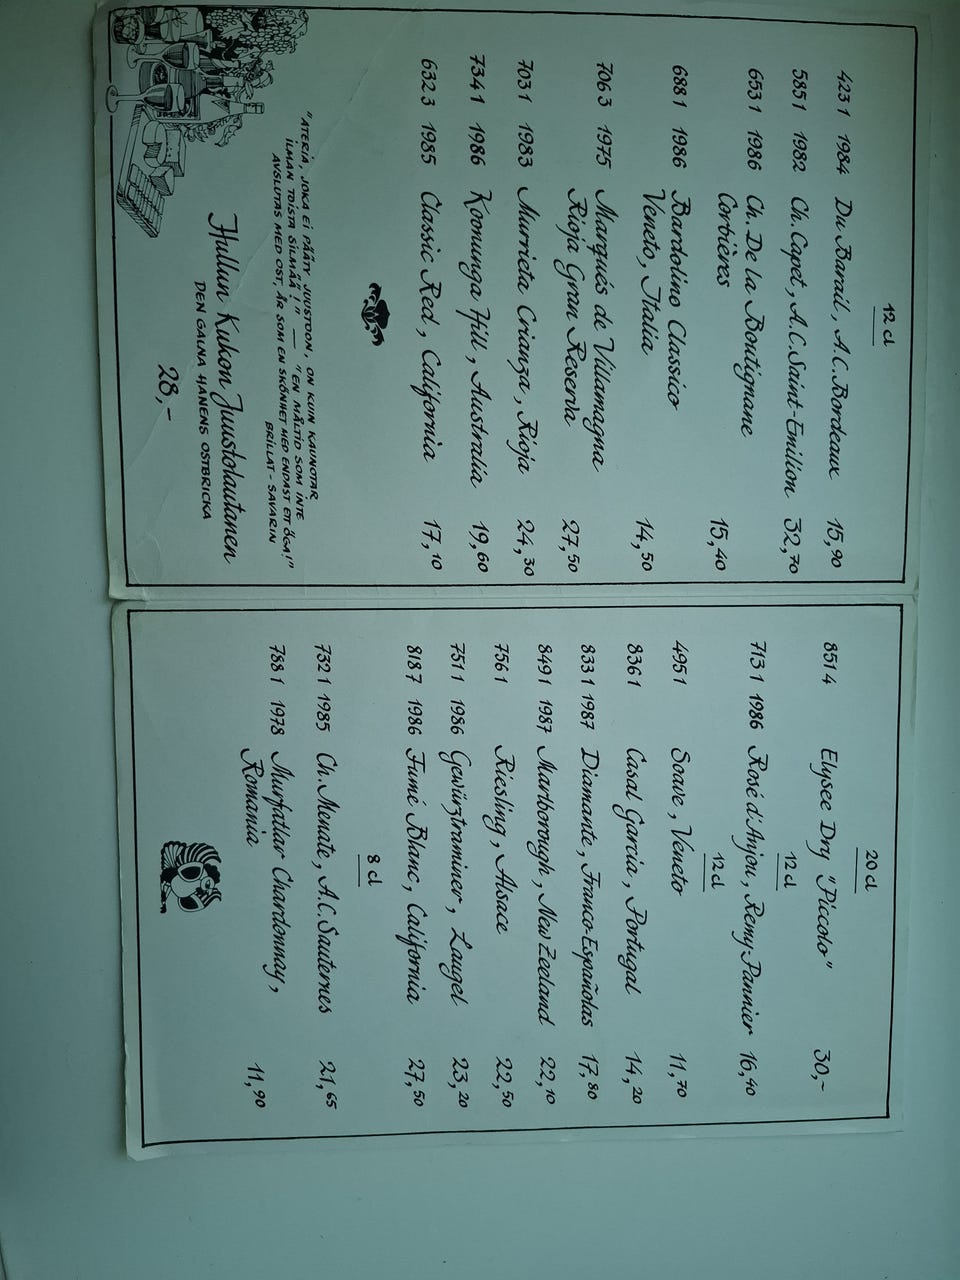 12 cl
4231 1984 Du Barail, A.C. Bordeaux 15,90
5851 1982 Ch. Capet, A.C. Saint-Emilion 32,70
6531 1986 Ch. De la Boutignane
Corbières 15,40
6881 1986 Bardolino Classico
Veneto, Italia 14,50
7063 1975 Marqués de Villamagna
Rioja Gran Reserva 27,50
7031 1983 Murrieta Crianza, Rioja 24,30
7341 1986 Koonunga Hill, Australia 19,60
6323 1985 Classic Red, California 17,10
"ATERIA, JOKA EI PÄÄTY JUUSTOON, ON KUIN KAUNOTAR
ILMAN TOISTA SILMÄÄ!" — "EN MÅLTID SOM INTE
AVSLUTAS MED OST, ÄR SOM EN SKÖNHET MED ENDAST ETT ÖGA!"
BRILLAT-SAVARIN
Hullun Kukon Juustolautanen
DEN GALNA HANENS OSTBRICKA
28,-
20 cl
8514 Elysee Dry "Piccolo" 30,-
12 cl
7131 1986 Rosé d'Anjou, Remy-Pannier 16,40
12 cl
4951 Soave, Veneto 11,70
8361 Casal Garcia, Portugal 14,20
8331 1987 Diamante, Franco-Españolas 17,80
8491 1987 Marlborough, New Zeeland 22,10
7561 Riesling, Alsace 22,50
7511 1986 Gewürztraminer, Laugel 23,20
8187 1986 Fumé Blanc, California 27,50
8 cl
7321 1985 Ch. Menate, A.C. Sauternes 21,65
7881 1978 Murfatlar Chardonnay,
Romania 11,90